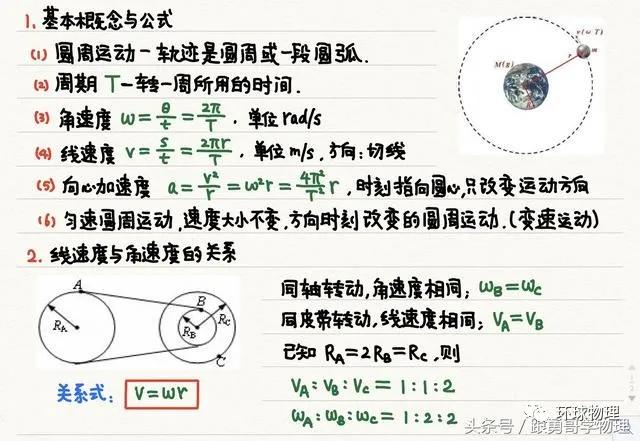 1. 基本概念与公式
(1) 圆周运动—轨迹是圆周或一段圆弧.
(2) 周期 T—转一周所用的时间.
(3) 角速度 ω = θ/t = 2π/T . 单位 rad/s
(4) 线速度 v = s/t = 2πr/T . 单位 m/s. 方向:切线
(5) 向心加速度 a = v²/r = ω²r = 4π²/T² r , 时刻指向圆心,只改变运动方向
(6) 匀速圆周运动,速度大小不变.方向时刻改变的圆周运动.(变速运动)
v(ω T)
m
r
M(g)
2. 线速度与角速度的关系
A
B
C
R_A
R_B
R_C
关系式: V=ωr
同轴转动,角速度相同; ω_B = ω_C
同皮带转动,线速度相同; V_A = V_B
已知 R_A = 2R_B = R_C, 则
V_A : V_B : V_C = 1 : 1 : 2
ω_A : ω_B : ω_C = 1 : 2 : 2
环球物理
头条号 / 跟勇哥学物理